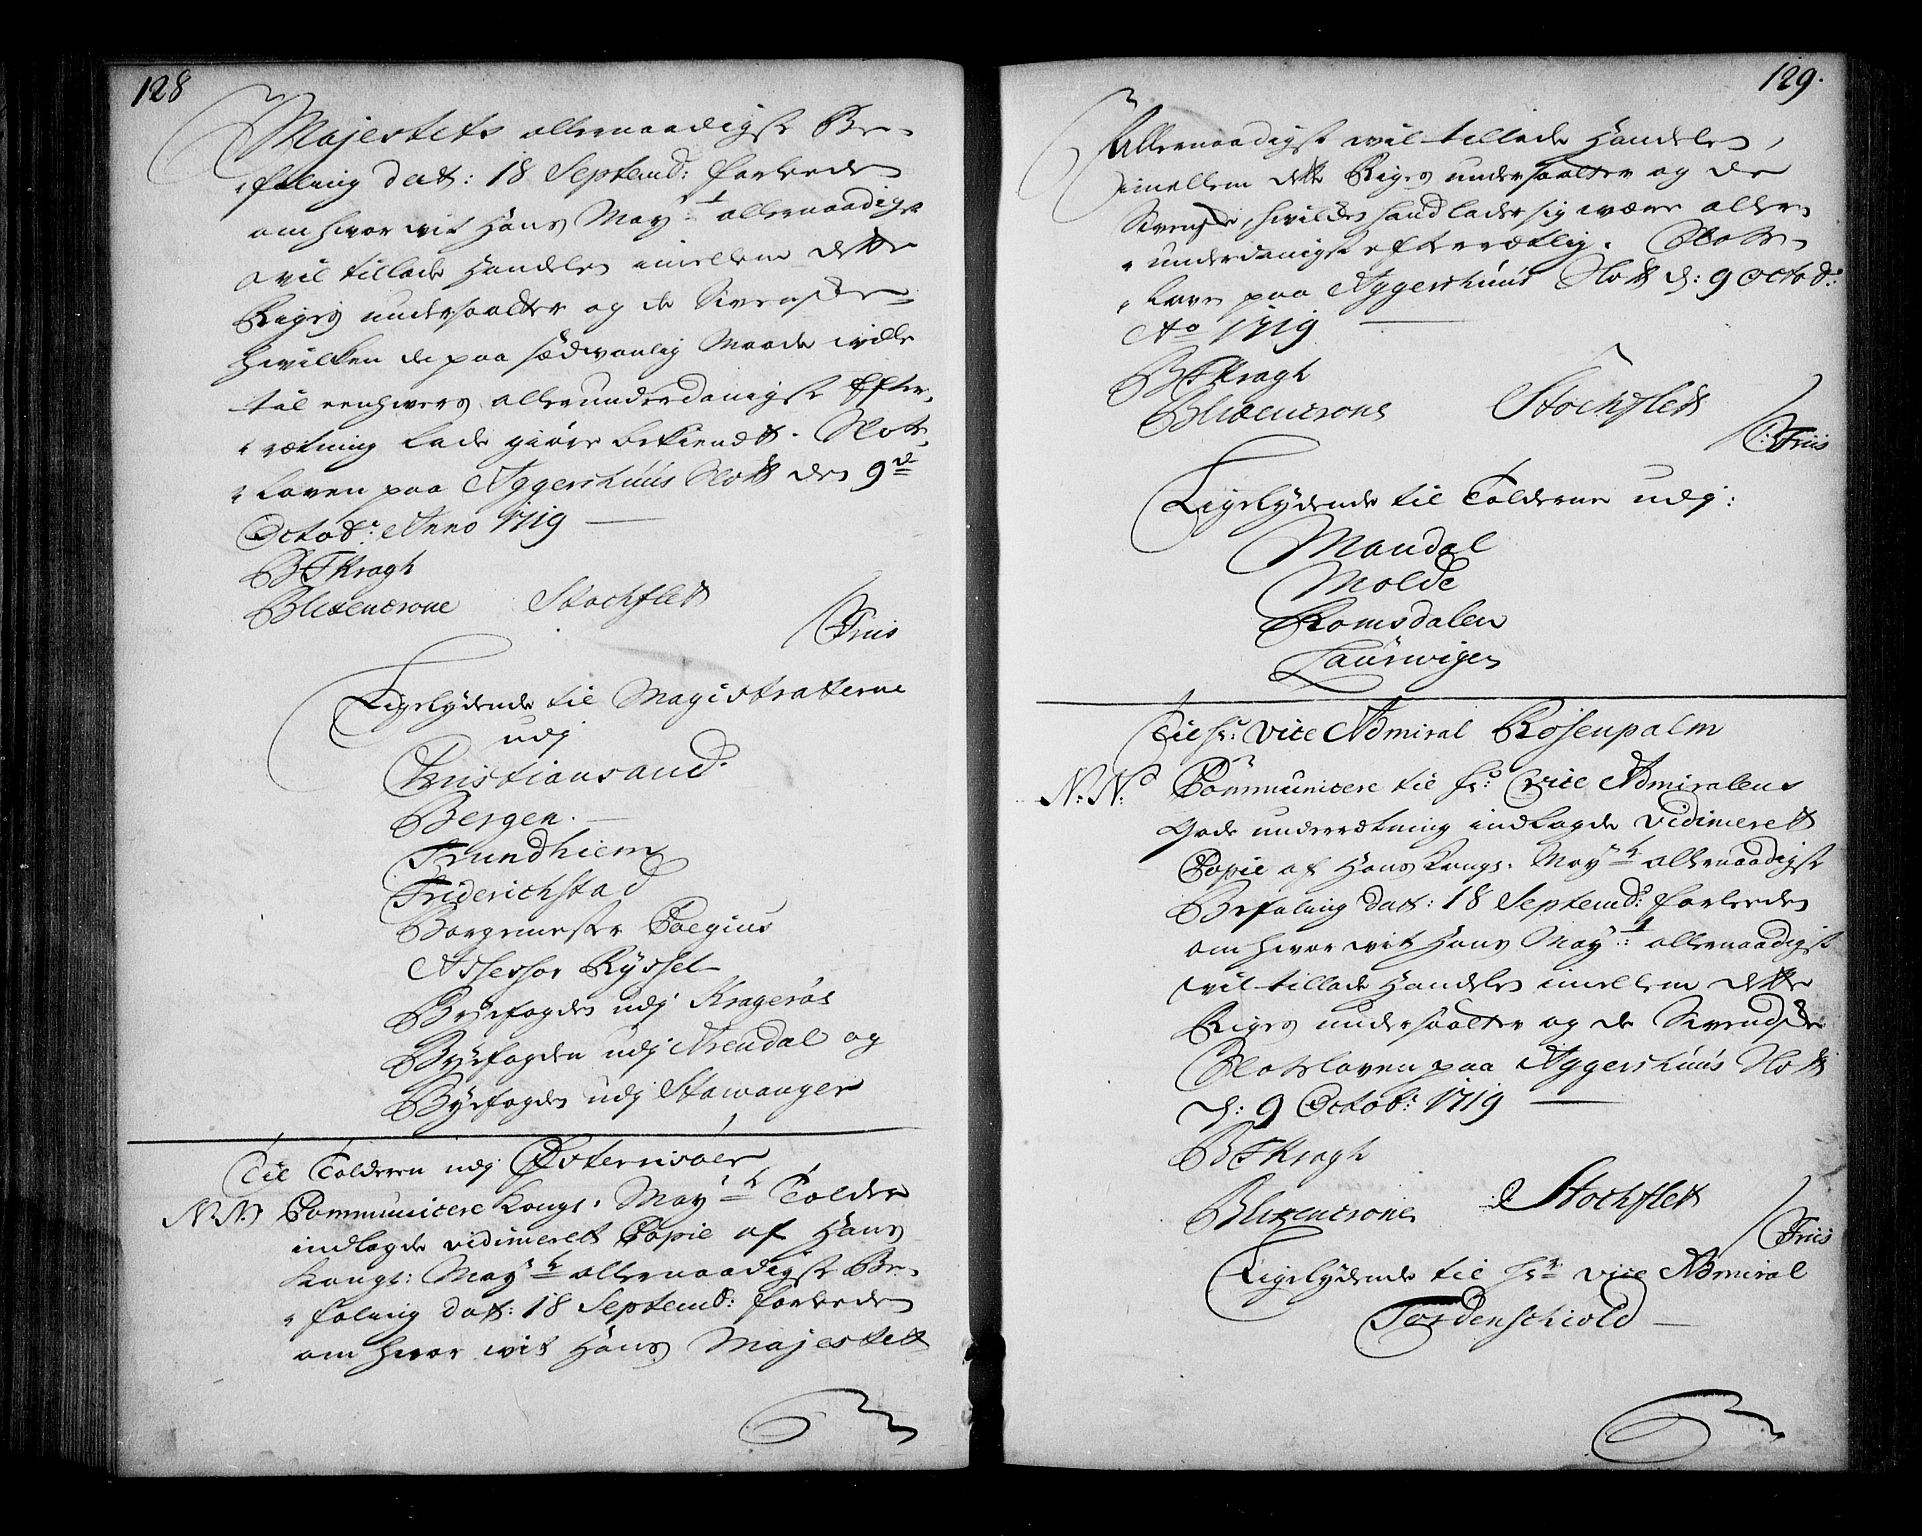 128
Majestets allernaadigste Be-
falning dat: 18 Septemb: forleeden
om hvorvit Hans May:t allernaadigst
vil tillade Handelen imellem dette
Riges undersaatter og de Svenske,
hvilken de paa sædvanlig Maade wille
til eenhvers allerunderdanigste Efter-
rætning lade giøre bekiendt. Slots-
loven paa Aggershuus Slott den 9de
Octobr: Anno 1719
B F Kragh
Blixencrone Stochflett
C: Friis
Ligelydende til Magistratterne
udj
Christiansand.
Bergen.
Trundhiem
Friderichstad
Borgemester Coegius
Assessor Ryssel
Byefogden udj Kragerøe
Byefogden udj Arendal og
Byefogden udj Stawanger
Til Tolderen udj Østerrisøer
N: N: Communicere Kongl. May:ts Tolder
indlagde vidimerett Copie af Hans
Kongl: May:ts allernaadigste Be-
falning dat: 18 Septemb: forleeden
om hvorvit Hans Majestett
129.
Allernaadigst wil tillade Handelen
imellem dette Riges undersaatter og de
Svenske, hvildes hand lader sig være aller-
underdanigst efterrættlig. Slots-
loven paa Aggershuus Slott d: 9 Octobr:
Ao 1719
B F Kragh
Blixencrone Stochflett
C: Friis
Ligelydende til Tolderne udj:
Mandal
Molde
Romsdalen
Laurwigen
Til Hr: Vice Admiral Rosenpalm
N: N: Communicere til Hr: Vice Admiralens
Gode underrætning indlagde Vidimerett
Copie af Hans Kongl. May:ts allernaadigste
Befaling dat: 18 Septemb: forleeden
om hvorvit Hans May:t allernaadigst
vil tillade Handelen imellem dette
Riges undersaatter og de Svendske
Slotsloven paa Aggershuus Slott
d: 9 Octobr: 1719
B F Kragh
Blixencrone Stochflett
C: Friis
Ligelydende til Hr: Vice Admiral
Tordenschiold